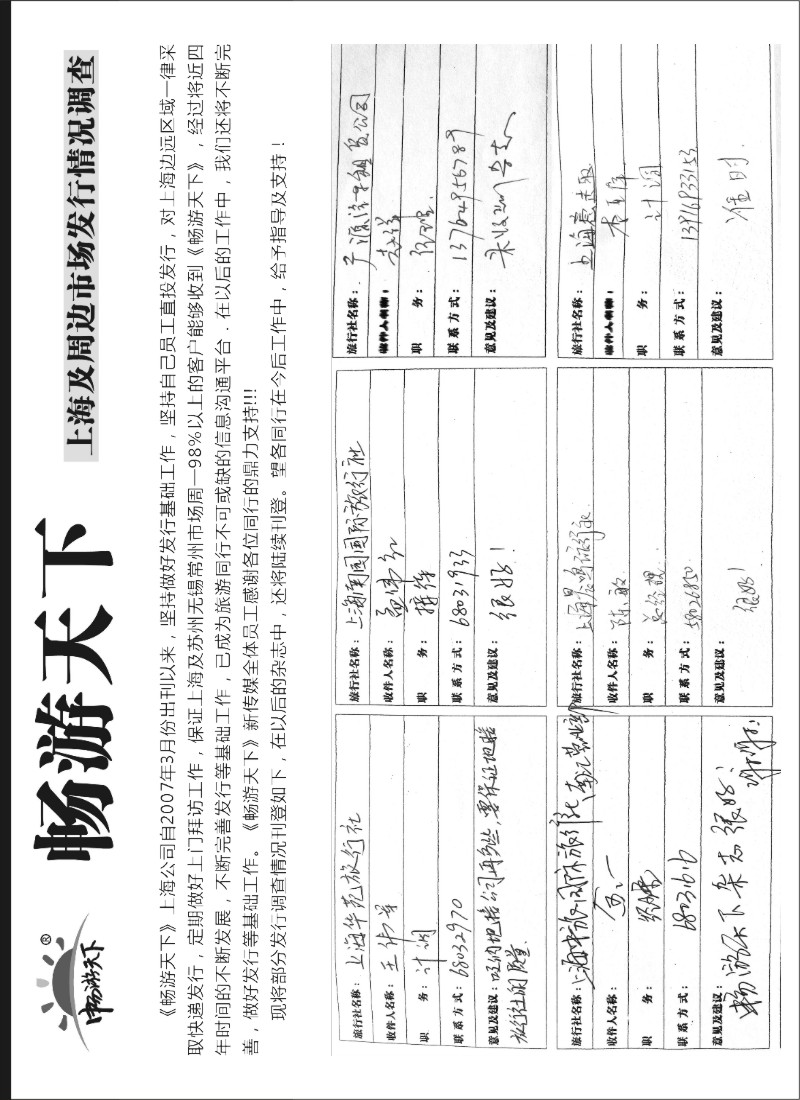 畅游天下
®
畅游天下
上海及周边市场发行情况调查
《畅游天下》上海公司自2007年3月份出刊以来，坚持做好发行基础工作，坚持自己员工直投发行，对上海边远区域一律采
取快递发行，定期做好上门拜访工作，保证上海及苏州无锡常州市场周一98%以上的客户能够收到《畅游天下》，经过将近四
年时间的不断发展，不断完善发行等基础工作，已成为旅游同行不可或缺的信息沟通平台．在以后的工作中，我们还将不断完
善，做好发行等基础工作。《畅游天下》新传媒全体员工感谢各位同行的鼎力支持!!!
现将部分发行调查情况刊登如下，在以后的杂志中，还将陆续刊登。望各同行在今后工作中，给予指导及支持！
旅行社名称：上海华苑旅行社
收件人名称：王伟等
职 务：计调
联系方式：68032970
意见及建议：吸纳地接公司再多些，要保证地接
旅行社的质量
旅行社名称：上海南园国际旅行社
收件人名称：孟伟红
职 务：接待
联系方式：68031933
意见及建议：很好！
旅行社名称：汽车租赁公司
收件人名称：
职 务：
联系方式：13704956789
意见及建议：
旅行社名称：上海中旅国际旅行社南汇营业部
收件人名称：
职 务：经理
联系方式：68031616
意见及建议：畅游天下杂志很好！谢谢！
旅行社名称：上海
收件人名称：陈敏
职 务：总经理
联系方式：58026850
意见及建议：很好！
旅行社名称：上海
收件人名称：
职 务：计调
联系方式：13916933153
意见及建议：准时.